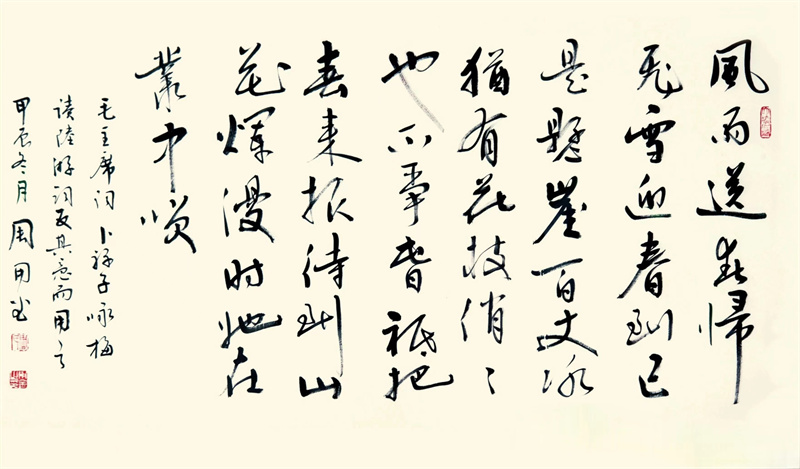 風雨送春歸
飛雪迎春到已
是懸崖百丈冰
猶有花枝俏〻
也不爭春祇把
春來報待到山
花爛漫時她在
叢中笑
毛主席词卜算子咏梅
读陸游词反其意而用之
甲辰冬月周用